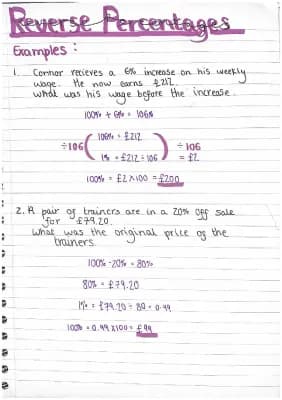 Reverse Percentages
Examples :
1. Connor recieves a 6% increase on his weekly
wage. He now earns £212.
What was his wage before the increase.
100% + 6% = 106%
106% = £212
÷106 ÷106
1% = £212 ÷ 106 = £2
100% = £2 X 100 = £200
2. A pair of trainers are in a 20% off sale
for £79.20.
What was the original price of the
trainers.
100% - 20% = 80%
80% = £79.20
1% = £79.20 ÷ 80 = 0.99
100% = 0.99 X 100 = £99